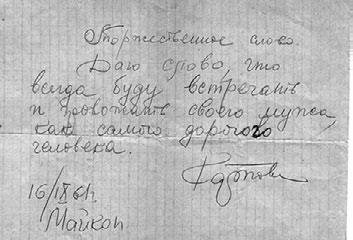 Торжественное слово
Даю слово, что
всегда буду встречать
и провожать своего мужа,
как самого дорогого
человека.
16/IX 61г.
Майкоп